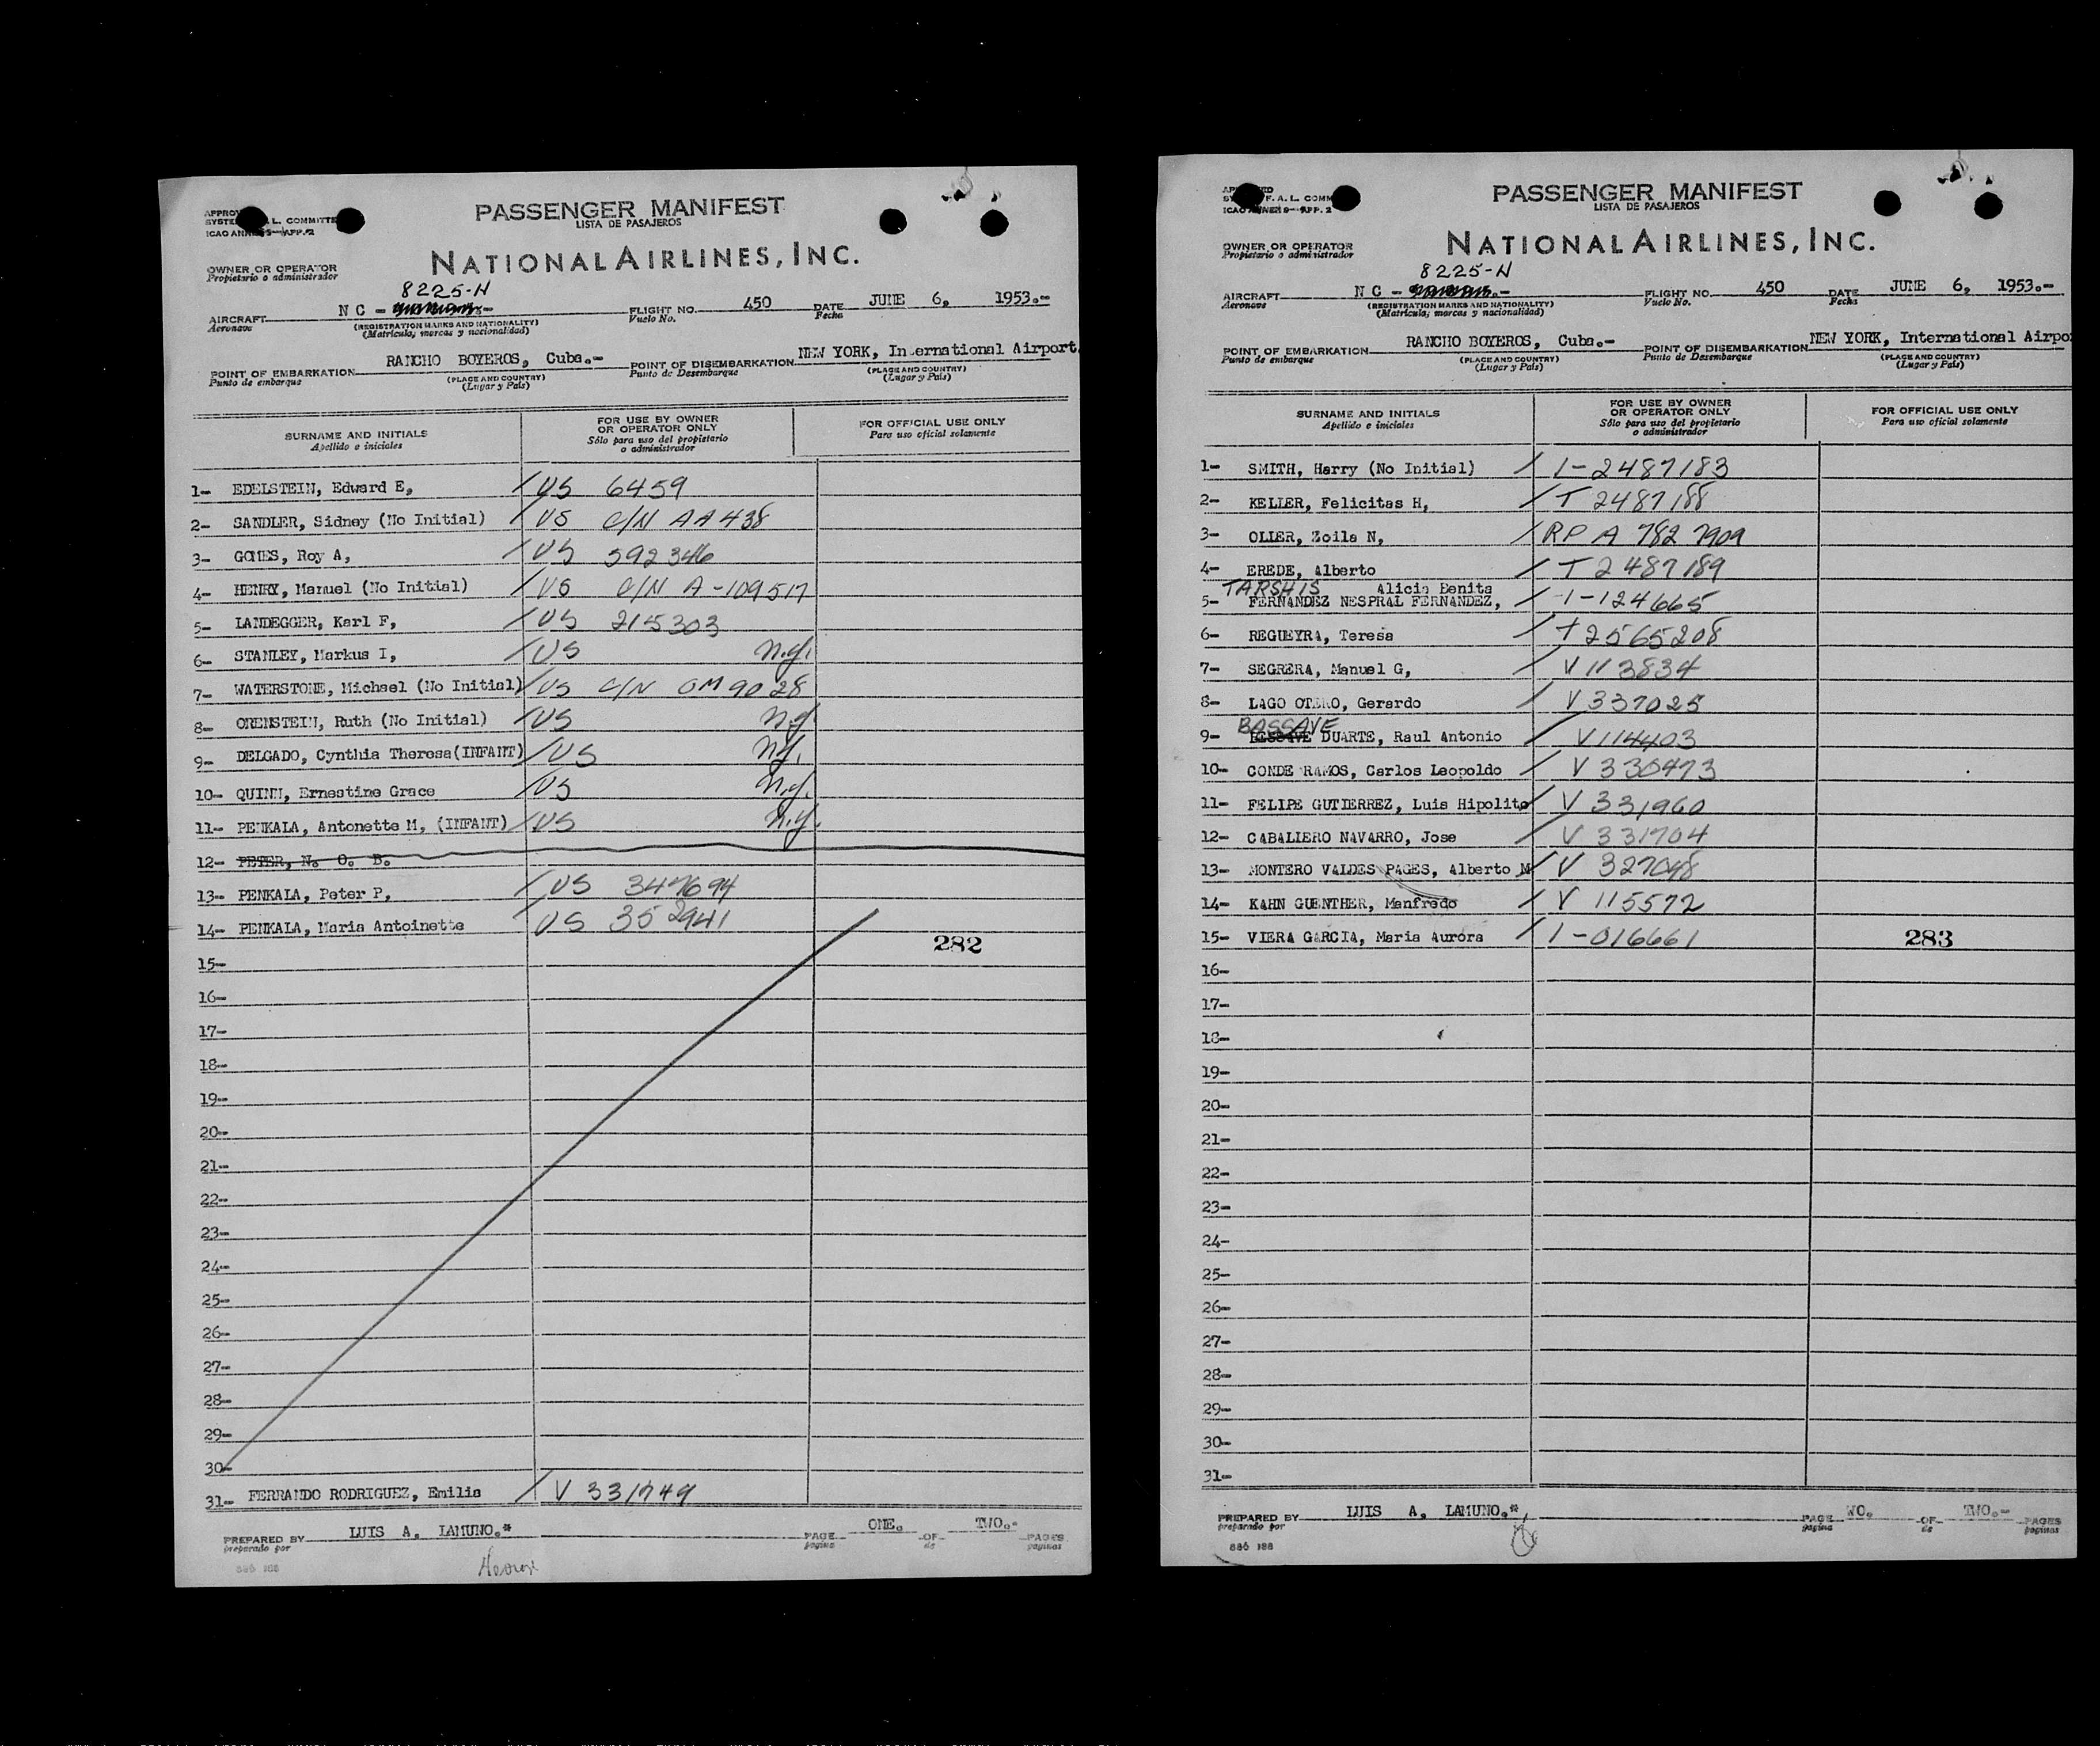 PASSENGER MANIFEST
LISTA DE PASAJEROS
NATIONAL AIRLINES, INC.
OWNER OR OPERATOR
Propietario o administrador
8225-N
AIRCRAFT N C - FLIGHT NO. 450 DATE JUNE 6, 1953.-
Aeronave (REGISTRATION MARKS AND NATIONALITY) Vuelo No. Fecha
(Matricula, marcas y nacionalidad)
POINT OF EMBARKATION RANCHO BOYEROS, Cuba.- POINT OF DISEMBARKATION NEW YORK, International Airport.
Punto de embarque (PLACE AND COUNTRY) Punto de Desembarque (PLACE AND COUNTRY)
(Lugar y País) (Lugar y País)
SURNAME AND INITIALS
Apellido e iniciales
FOR USE BY OWNER
OR OPERATOR ONLY
Sólo para uso del propietario
o administrador
FOR OFFICIAL USE ONLY
Para uso oficial solamente
1- EDELSTEIN, Edward E, / US 6459
2- SANDLER, Sidney (No Initial) / US C/N AA 438
3- GOMES, Roy A, / US 592346
4- HENRY, Manuel (No Initial) / US C/N A-109517
5- LANDEGGER, Karl F, / US 215303
6- STANLEY, Markus I, / US n.y.
7- WATERSTONE, Michael (No Initial) / US C/N OM 9028
8- ORENSTEIN, Ruth (No Initial) / US n.y
9- DELGADO, Cynthia Theresa (INFANT) / US n.y.
10- QUINN, Ernestine Grace / US n.y.
11- PENKALA, Antonette M, (INFANT) / US n.y.
12- PETER, N. O. B.
13- PENKALA, Peter P, / US 347694
14- PENKALA, Maria Antoinette / US 352941
282
15-
16-
17-
18-
19-
20-
21-
22-
23-
24-
25-
26-
27-
28-
29-
30-
31- FERRANDO RODRIGUEZ, Emilia / V 331749
PREPARED BY LUIS A. LAMUNO.* PAGE ONE. OF TWO.- PAGES
preparado por pagina de paginas
PASSENGER MANIFEST
LISTA DE PASAJEROS
NATIONAL AIRLINES, INC.
OWNER OR OPERATOR
Propietario o administrador
8225-N
AIRCRAFT N C - FLIGHT NO. 450 DATE JUNE 6, 1953.-
Aeronave (REGISTRATION MARKS AND NATIONALITY) Vuelo No. Fecha
(Matricula, marcas y nacionalidad)
POINT OF EMBARKATION RANCHO BOYEROS, Cuba.- POINT OF DISEMBARKATION NEW YORK, International Airpo
Punto de embarque (PLACE AND COUNTRY) Punto de Desembarque (PLACE AND COUNTRY)
(Lugar y País) (Lugar y País)
SURNAME AND INITIALS
Apellido e iniciales
FOR USE BY OWNER
OR OPERATOR ONLY
Sólo para uso del propietario
o administrador
FOR OFFICIAL USE ONLY
Para uso oficial solamente
1- SMITH, Harry (No Initial) / 1-2487183
2- KELLER, Felicitas H, / T 2487188
3- OLIER, Zoila N, / RP A 782 7909
4- EREDE, Alberto / T 2487189
TARSHIS Alicia Benita
5- FERNANDEZ NESPRAL FERNANDEZ, / 1-124665
6- REGUEYRA, Teresa / T 2565208
7- SEGRERA, Manuel G, / V 113834
8- LAGO OTERO, Gerardo / V 337025
BASSAVE
9- DUARTE, Raul Antonio / V 114403
10- CONDE RAMOS, Carlos Leopoldo / V 330473
11- FELIPE GUTIERREZ, Luis Hipolito / V 331960
12- CABALIERO NAVARRO, Jose / V 331704
13- MONTERO VALDES PAGES, Alberto M / V 327048
14- KAHN GUENTHER, Manfredo / V 115572
15- VIERA GARCIA, Maria Aurora / 1-016661
283
16-
17-
18-
19-
20-
21-
22-
23-
24-
25-
26-
27-
28-
29-
30-
31-
PREPARED BY LUIS A. LAMUNO.* PAGE WO. OF TWO.- PAGES
preparado por pagina de paginas